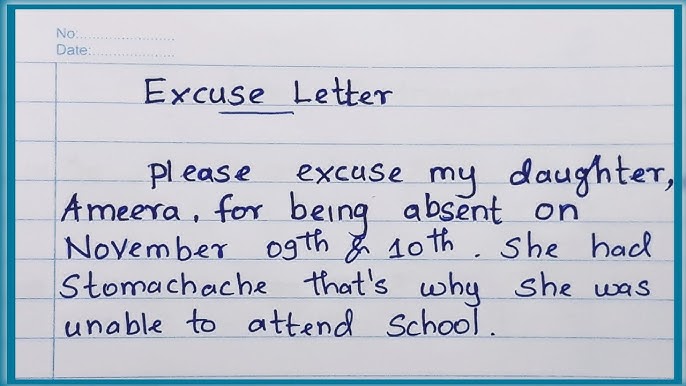 No:........................
Date:......................
Excuse Letter
Please excuse my daughter,
Ameera, for being absent on
November 09th & 10th. She had
Stomachache that's why she was
unable to attend School.